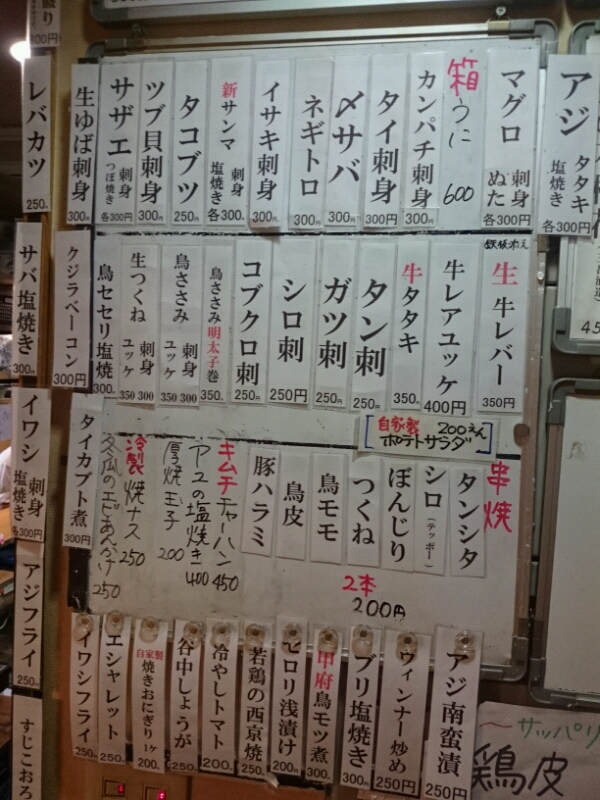 アジ タタキ 塩焼き 各300円
マグロ 刺身 ぬた 各300円
箱うに 600
カンパチ刺身 300円
タイ刺身 300円
〆サバ 300円
ネギトロ 300円
イサキ刺身 300円
新サンマ 刺身 塩焼き 各300円
タコブツ 250円
ツブ貝刺身 300円
サザエ 刺身 つぼ焼き 各300円
生ゆば刺身 300円
レバカツ 250円
生牛レバー 350円
牛レアユッケ 400円
牛タタキ 350円
タン刺 250円
ガツ刺 250円
シロ刺 250円
コブクロ刺 250円
鳥ささみ明太子巻 350円
鳥ささみ 刺身 ユッケ 350 300
生つくね 刺身 ユッケ 350 300
鳥セセリ塩焼 300円
クジラベーコン 300円
サバ塩焼き 300円
自家製 ポテトサラダ 200えん
串焼
タンシタ
シロ(テッポー)
ぼんじり
つくね
鳥モモ
鳥皮
豚ハラミ
2本
200円
キムチチャーハン 450
アユの塩焼き 400
厚焼玉子 200
冷製焼ナス 250
冬瓜のエビあんかけ 250
タイカブト煮 300円
イワシ 刺身 塩焼き 各300円
アジフライ 250円
アジ南蛮漬 250円
ウィンナー炒め 250円
ブリ塩焼き 300円
甲府鳥モツ煮 300円
セロリ浅漬け 200円
若鶏の西京焼 250円
冷やしトマト 200円
谷中しょうが 250円
自家製 焼きおにぎり 1ケ 200円
エシャレット 250円
イワシフライ 250円
すじこおろ
〜サッパリ
鶏皮